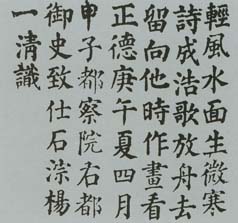 輕風水面生微寒
詩成浩歌放舟去
留向他時作畫看
正德庚午夏四月
甲子都察院右都
御史致仕石淙楊
一清識